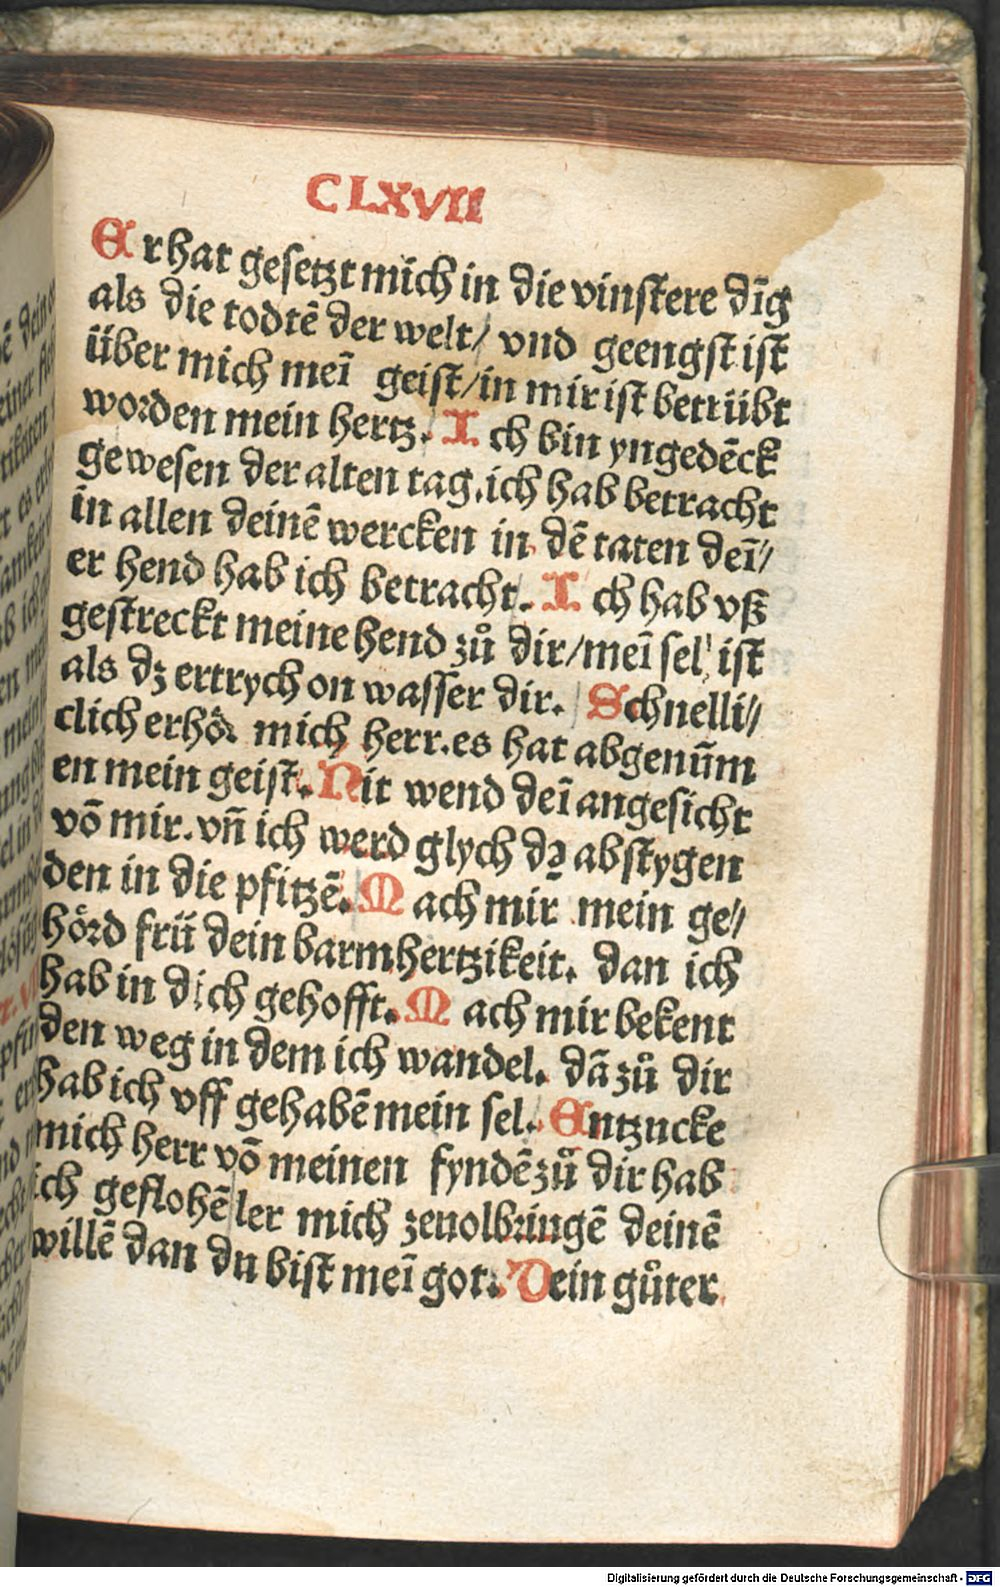 CLXVII
Er hat gesetzt mich in die vinstere dīg
als die todtē der welt/ vnd geengst ist
über mich meī geist/in mir ist betrübt
worden mein hertz. Ich bin yngedēck
gewesen der alten tag.ich hab betracht
in allen deinē wercken in dē taten deī//
er hend hab ich betracht. Ich hab vß
gestreckt meine hend zů dir/meī sel ist
als dz ertrych on wasser dir. Schnelli//
clich erhör mich herr.es hat abgenūm
en mein geist. Nit wend deī angesicht
vō mir.vñ ich werd glych dꝛ abstygen
den in die pfitzē. Mach mir mein ge//
hörd frü dein barmhertzikeit. dan ich
hab in dich gehofft. Mach mir bekent
den weg in dem ich wandel. dā zů dir
hab ich vff gehabē mein sel. Entzucke
mich herr vō meinen fyndē zů dir hab
ich geflohē ler mich zeuolbringē deinē
willē dan du bist meī got. Dein gůter
Digitalisierung gefördert durch die Deutsche Forschungsgemeinschaft - DFG